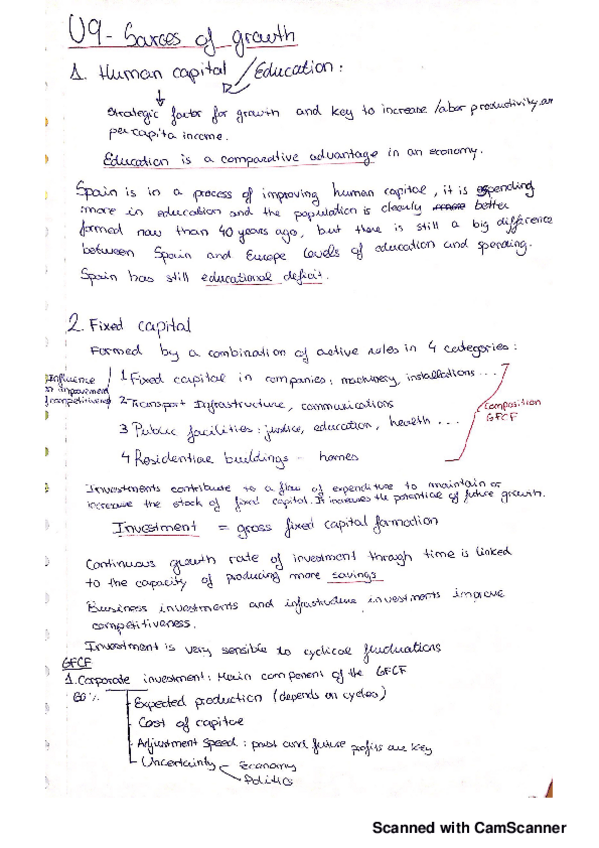 U9 - Sources of growth
1. Human capital / Education:
strategic factor for growth and key to increase labor productivity or
per capita income.
Education is a comparative advantage in an economy.
Spain is in a process of improving human capital, it is spending
more in education and the population is clearly more better
formed now than 40 years ago, but there is still a big difference
between Spain and Europe levels of education and spending.
Spain has still educational deficit.
2. Fixed capital
Formed by a combination of active roles in 4 categories:
Influence
in improvement
competitiveness
1 Fixed capital in companies: machinery, installations...
2 Transport Infrastructure, communications
3 Public facilities: justice, education, health...
4 Residential buildings - homes
Composition
GFCF
Investments contribute to a flow of expenditure to maintain or
increase the stock of fixed capital. It increases the potential of future growth.
Investment = gross fixed capital formation
Continuous growth rate of investment through time is linked
to the capacity of producing more savings
Business investments and infrastructure investments improve
competitiveness.
Investment is very sensible to cyclical fluctuations
GFCF
1. Corporate investment: Main component of the GFCF
60%
- Expected production (depends on cycles)
- Cost of capital
- Adjustment speed: past and future profits are key
- Uncertainty
Economy
Politics
Scanned with CamScanner